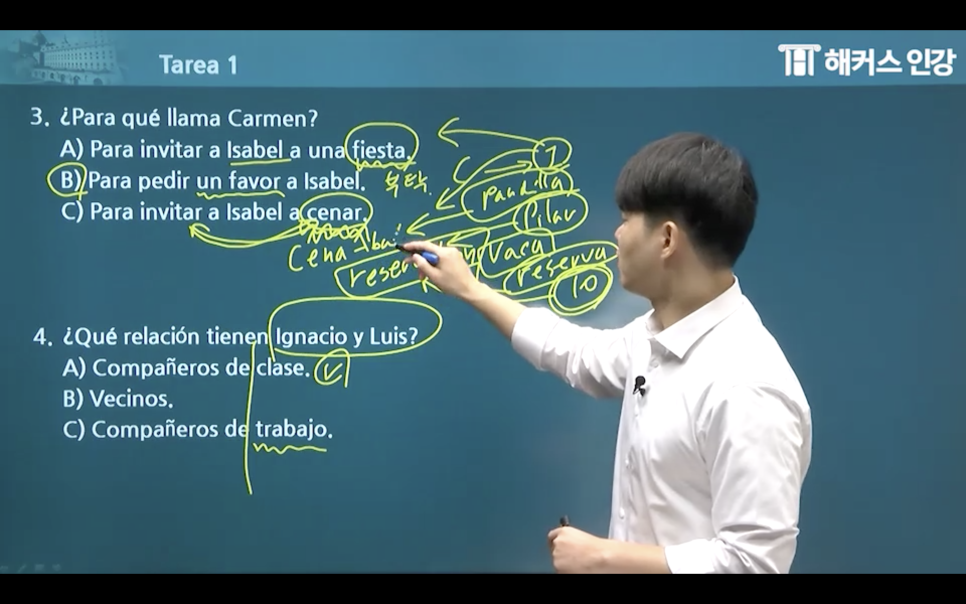 Tarea 1
해커스 인강
3. ¿Para qué llama Carmen?
A) Para invitar a Isabel a una fiesta.
B) Para pedir un favor a Isabel.
부탁.
C) Para invitar a Isabel a cenar.
7
pandilla
Pilar
Cena
vaca
reserva
10
4. ¿Qué relación tienen Ignacio y Luis?
A) Compañeros de clase.
B) Vecinos.
C) Compañeros de trabajo.